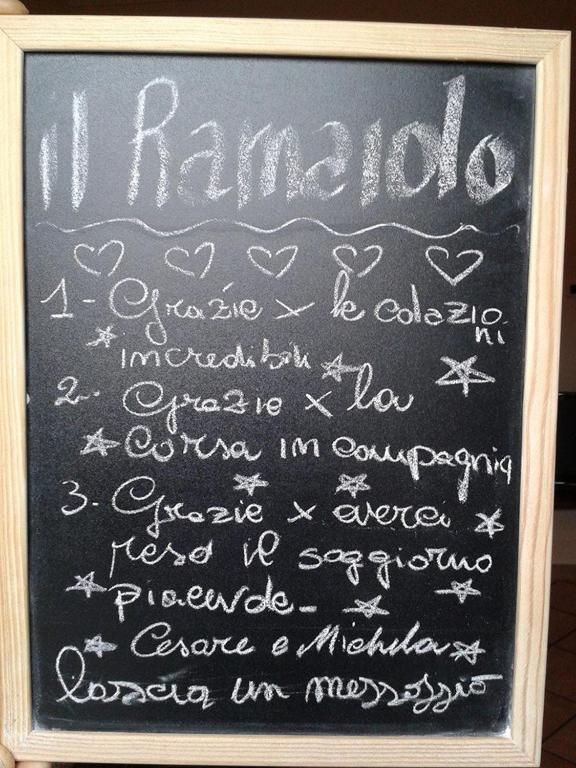 il Ramaiolo
1- Grazie x le colazioni
incredibili
2- Grazie x la
corsa in compagnia
3- Grazie x averci
reso il soggiorno
piacevole-
Cesare e Michela
lascia un messaggio